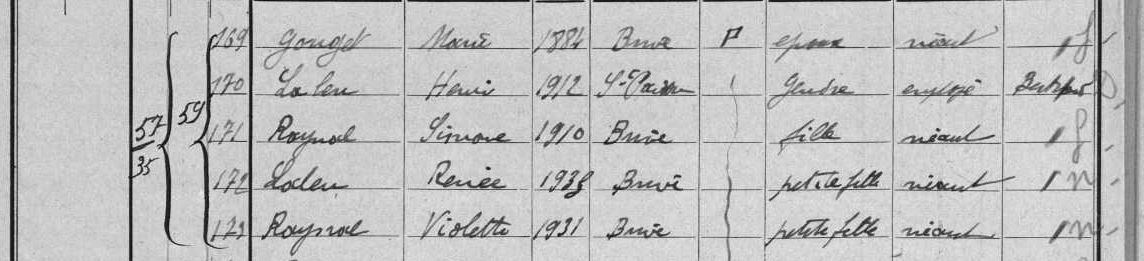 169 Gouget Marie 1884 Brive F epoux néant " f
170 Laleu Henri 1912 Gendre employé
57 59 171 Raynal Simone 1910 Brive fille néant " f
35 172 Laleu Renée 1935 Brive petite fille néant " n
173 Raynal Violette 1931 Brive petite fille néant " n